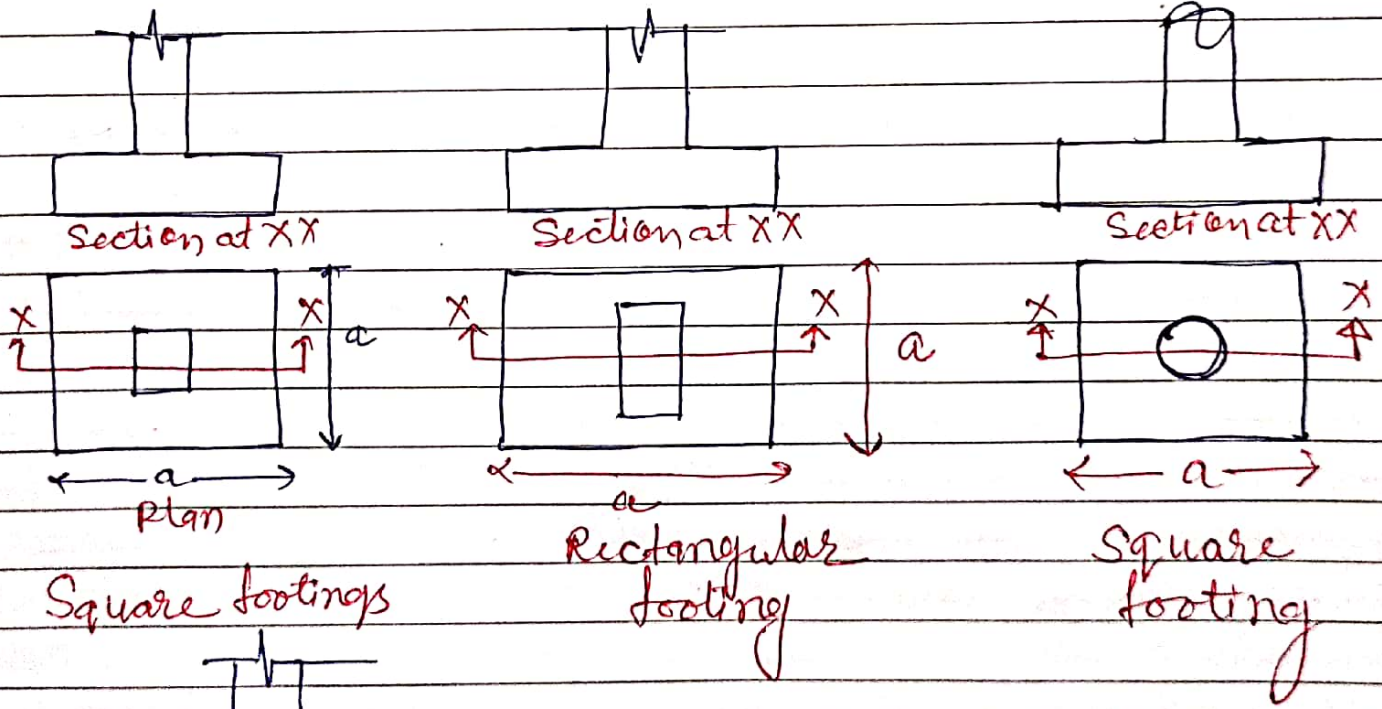 Section at XX
Section at XX
Section at XX
X
X
a
X
X
a
X
X
a
Plan
a
a
Square footings
Rectangular
footing
Square
footing